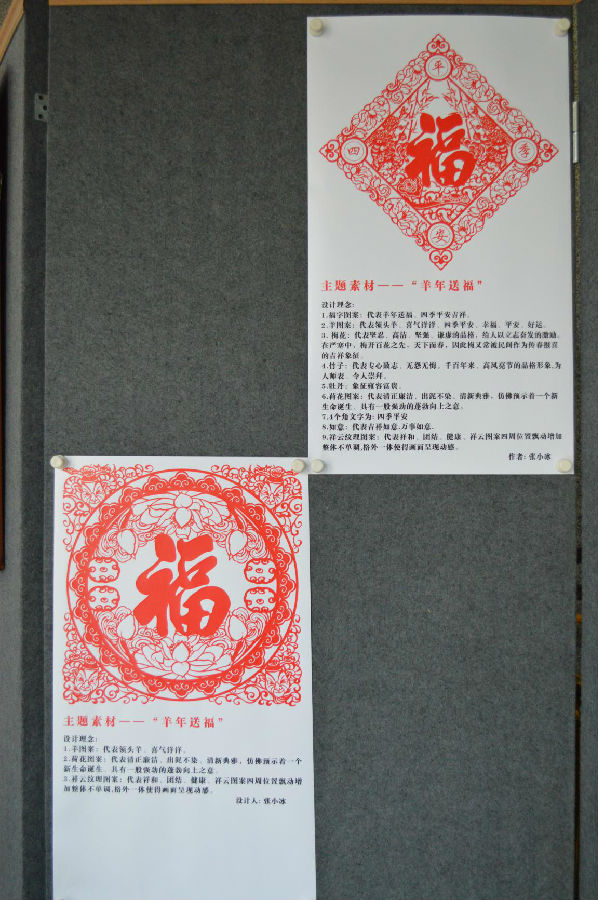 平
福
四
季
安
主题素材——“羊年送福”
设计理念：
1.福字图案：代表羊年送福、四季平安吉祥。
2.羊图案：代表领头羊、喜气洋洋、四季平安、幸福、平安、好运。
3.梅花：代表坚忍、高洁、坚强、谦虚的品格，给人以立志奋发的激励。
在严寒中，梅开百花之先，天下而春，因此梅又常被民间作为传春报喜
的吉祥象征。
4.竹子：代表专心致志、无怨无悔、千百年来、高风亮节的品格形象，为
人师表、令人崇拜。
5.牡丹：象征雍容富贵。
6.荷花图案：代表清正廉洁、出泥不染、清新典雅，仿佛预示着一个新
生命诞生、具有一般强劲的蓬勃向上之意。
7.4个角文字为：四季平安
8.如意：代表吉祥如意.万事如意.
9.祥云纹理图案：代表祥和、团结、健康、祥云图案四周位置飘动增加
整体不单调,格外一体使得画面呈现动感。
作者：张小冰
福
主题素材——“羊年送福”
设计理念：
1.羊图案：代表领头羊、喜气洋洋。
2.荷花图案：代表清正廉洁、出泥不染、清新典雅，仿佛预示着一个
新生命诞生、具有一般强劲的蓬勃向上之意。
3.祥云纹理图案：代表祥和、团结、健康、祥云图案四周位置飘动增
加整体不单调,格外一体使得画面呈现动感。
设计人：张小冰